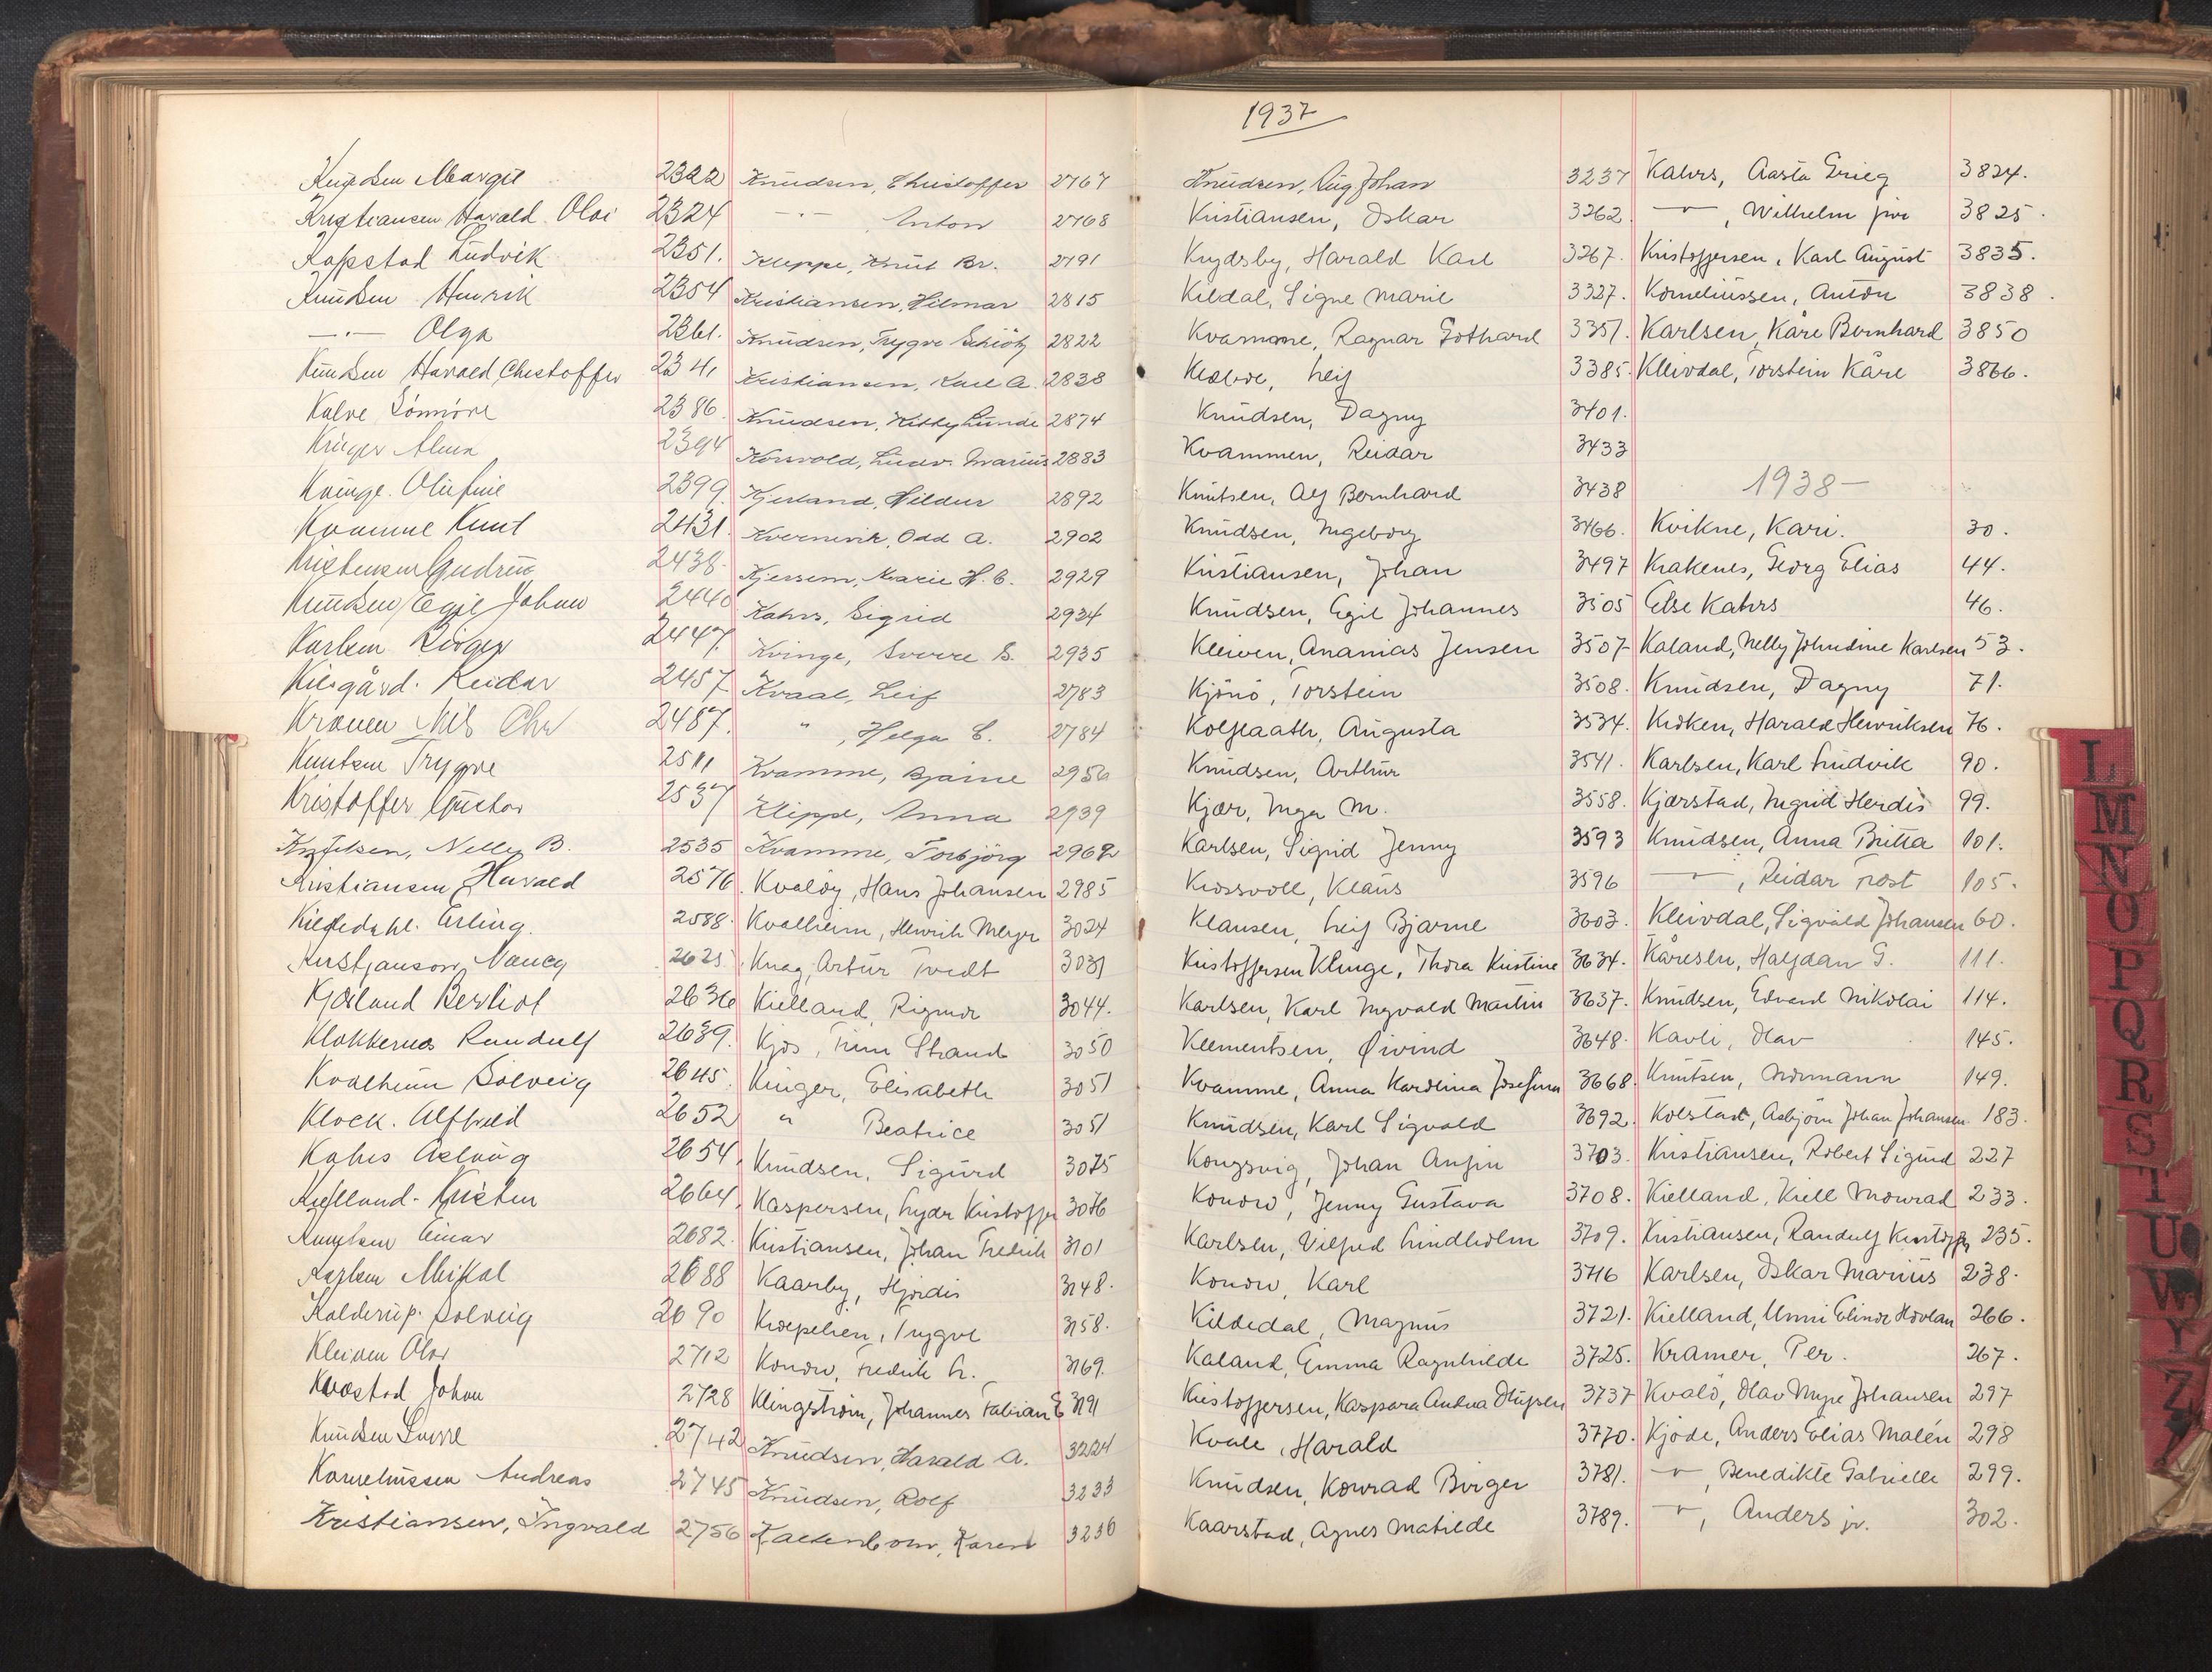 Knudsen Margit 2322
Kristiansen Harald Olai 2324
Kopstad Ludvik 2351.
Knudsen Henrik 2354
—"— Olga 2361.
Knudsen Harald Christoffer 2341
Kalve Sönnöve 2386.
Krüger Alma 2394
Kvinge. Olufine 2399.
Kvamme Knut 2431.
Kristensen Gudrun 2438.
Knudsen Egil Johan 2440
Karlsen Birger 2447.
Kilsgård. Reidar 2457
Kronen Nils Chr 2487.
Knutsen Trygve 2511
Kristoffer Gustav 2537
Knutsen, Nelly B. 2535
Kristiansen Harald 2576.
Kildedahl. Erling. 2588.
Kristjanson Nancy 2625
Kjærland Bergliot 2636
Klokkernes Randulf 2639.
Kvalheim Solveig 2645.
Klock. Alfhild 2652
Kahrs Aslaug 2654.
Kielland. Kirsten 2664.
Knutsen Einar 2682.
Karlsen Mikal 2688
Kalderup. Solveig 2690
Kleiven Olav 2712
Kvastad Johan 2728
Knudsen Sverre 2742
Korneliussen Andreas 2745
Kristiansen, Ingvald 2756
Knudsen, Christoffer 2767
—"— Anton 2768
Kleppe, Knut Br. 2791
Kristiansen, Hilmar 2815
Knudsen, Trygve Schiötz 2822
Kristiansen, Karl A. 2838
Knudsen, Kitty Lunde 2874
Korsvold, Ludv. Marius 2883
Kjerland, Hildur 2892
Kvernevik, Odd A. 2902
Kjersem, Marie H. C. 2929
Kahrs, Sigrid 2934
Kvinge, Sverre S. 2935
Kvaal, Leif 2783
" , Helga C. 2784
Kvamme, Bjarne 2956
Klippe, Anna 2939
Kvamme, Torbjörg 2962
Kvalöy, Hans Johansen 2985
Kvalheim, Henrik Meyer 3024
Knag, Artur Tvedt 3031
Kielland, Rigmor 3044.
Kjös, Finn Strand 3050
Krüger, Elisabeth 3051
" Beatrice 3051
Knudsen, Sigurd 3075
Kaspersen, Lyder Kristoffer 3076
Kristiansen, Johan Fredrik 3101
Kaarby, Hjördis 3148.
Kroepelien, Trygve 3158.
Konow, Fredrik L. 3169.
Klingström, Johannes Fabian E 3191
Knudsen, Harald A. 3224
Knudsen, Rolf 3233
Kaltenborn, Karen 3236
1937
Knudsen, Aug Johan 3237
Kristiansen, Oskar 3262.
Krydsby, Harald Karl 3267.
Kildal, Signe Marie 3327.
Kvamme, Ragnar Gothard 3351.
Kleive, Leif 3385.
Knudsen, Dagny 3401.
Kvammen, Reidar 3433
Knutsen, Alf Bernhard 3438
Knudsen, Ingeborg 3466.
Kristiansen, Johan 3497
Knudsen, Egil Johannes 3505
Kleiven, Ananias Jensen 3507
Kjönö, Torstein 3508.
Kolflaath, Augusta 3534.
Knudsen, Arthur 3541.
Kjær, Inga M. 3558.
Karlsen, Sigrid Jenny 3593
Krossvoll, Klaus 3596
Klausen, Leif Bjarne 3603.
Kristoffersen Klinge, Thora Kristine 3634.
Karlsen, Karl Ingvald Martin 3637.
Klementsen, Øivind 3648.
Kvamme, Anna Karolina Josefina 3668.
Knudsen, Karl Sigvald 3692.
Kongsvig, Johan Anfin 3703.
Konow, Jenny Gustava 3708.
Karlsen, Vilfred Lindholm 3709.
Konow, Karl 3716
Kildedal, Magnus 3721.
Kaland, Emma Ragnhilde 3725.
Kristoffersen, Kaspara Andrea Olufsen 3737
Kvale, Harald 3770.
Knudsen, Konrad Birger 3781.
Kaarstad, Agnes Matilde 3789.
Kahrs, Aasta Grieg 3824.
—"—, Wilhelm jun 3825.
Kristoffersen, Karl August 3835.
Korneliussen, Anton 3838.
Karlsen, Kåre Bernhard 3850
Kleivdal, Torstein Kåre 3866.
1938 —
Kvikne, Kari. 30.
Krakenes, Georg Elias 44.
Else Kahrs 46.
Kaland, Nelly Johndine Karlsen 53.
Knudsen, Dagny 71.
Kroken, Harald Henriksen 76.
Karlsen, Karl Ludvik 90.
Kjærstad, Ingrid Herdis 99.
Knudsen, Anna Britta 101.
—"—, Reidar Trost 105.
Kleivdal, Sigvald Johansen 60.
Kåresen, Halfdan G. 111.
Knudsen, Edvard Nikolai 114.
Kavli, Olav 145.
Knutsen, Normann 149.
Kolstad, Asbjörn Johan Johansen 183.
Kristiansen, Robert Sigurd 227
Kielland, Kiell Monrad 233.
Kristiansen, Randulf Kristoffer 235.
Karlsen, Oskar Marius 238.
Kielland, Unni Elinor Hovlan 266.
Kramer, Per. 267.
Kvalö, Olav Myre Johansen 297
Kjöde, Anders Elias Malén 298
—"—, Benedikte Gabrielle 299.
—"—, Anders jr. 302.
L
M
N
O
P
Q
R
S
T
U
W
Y
Z